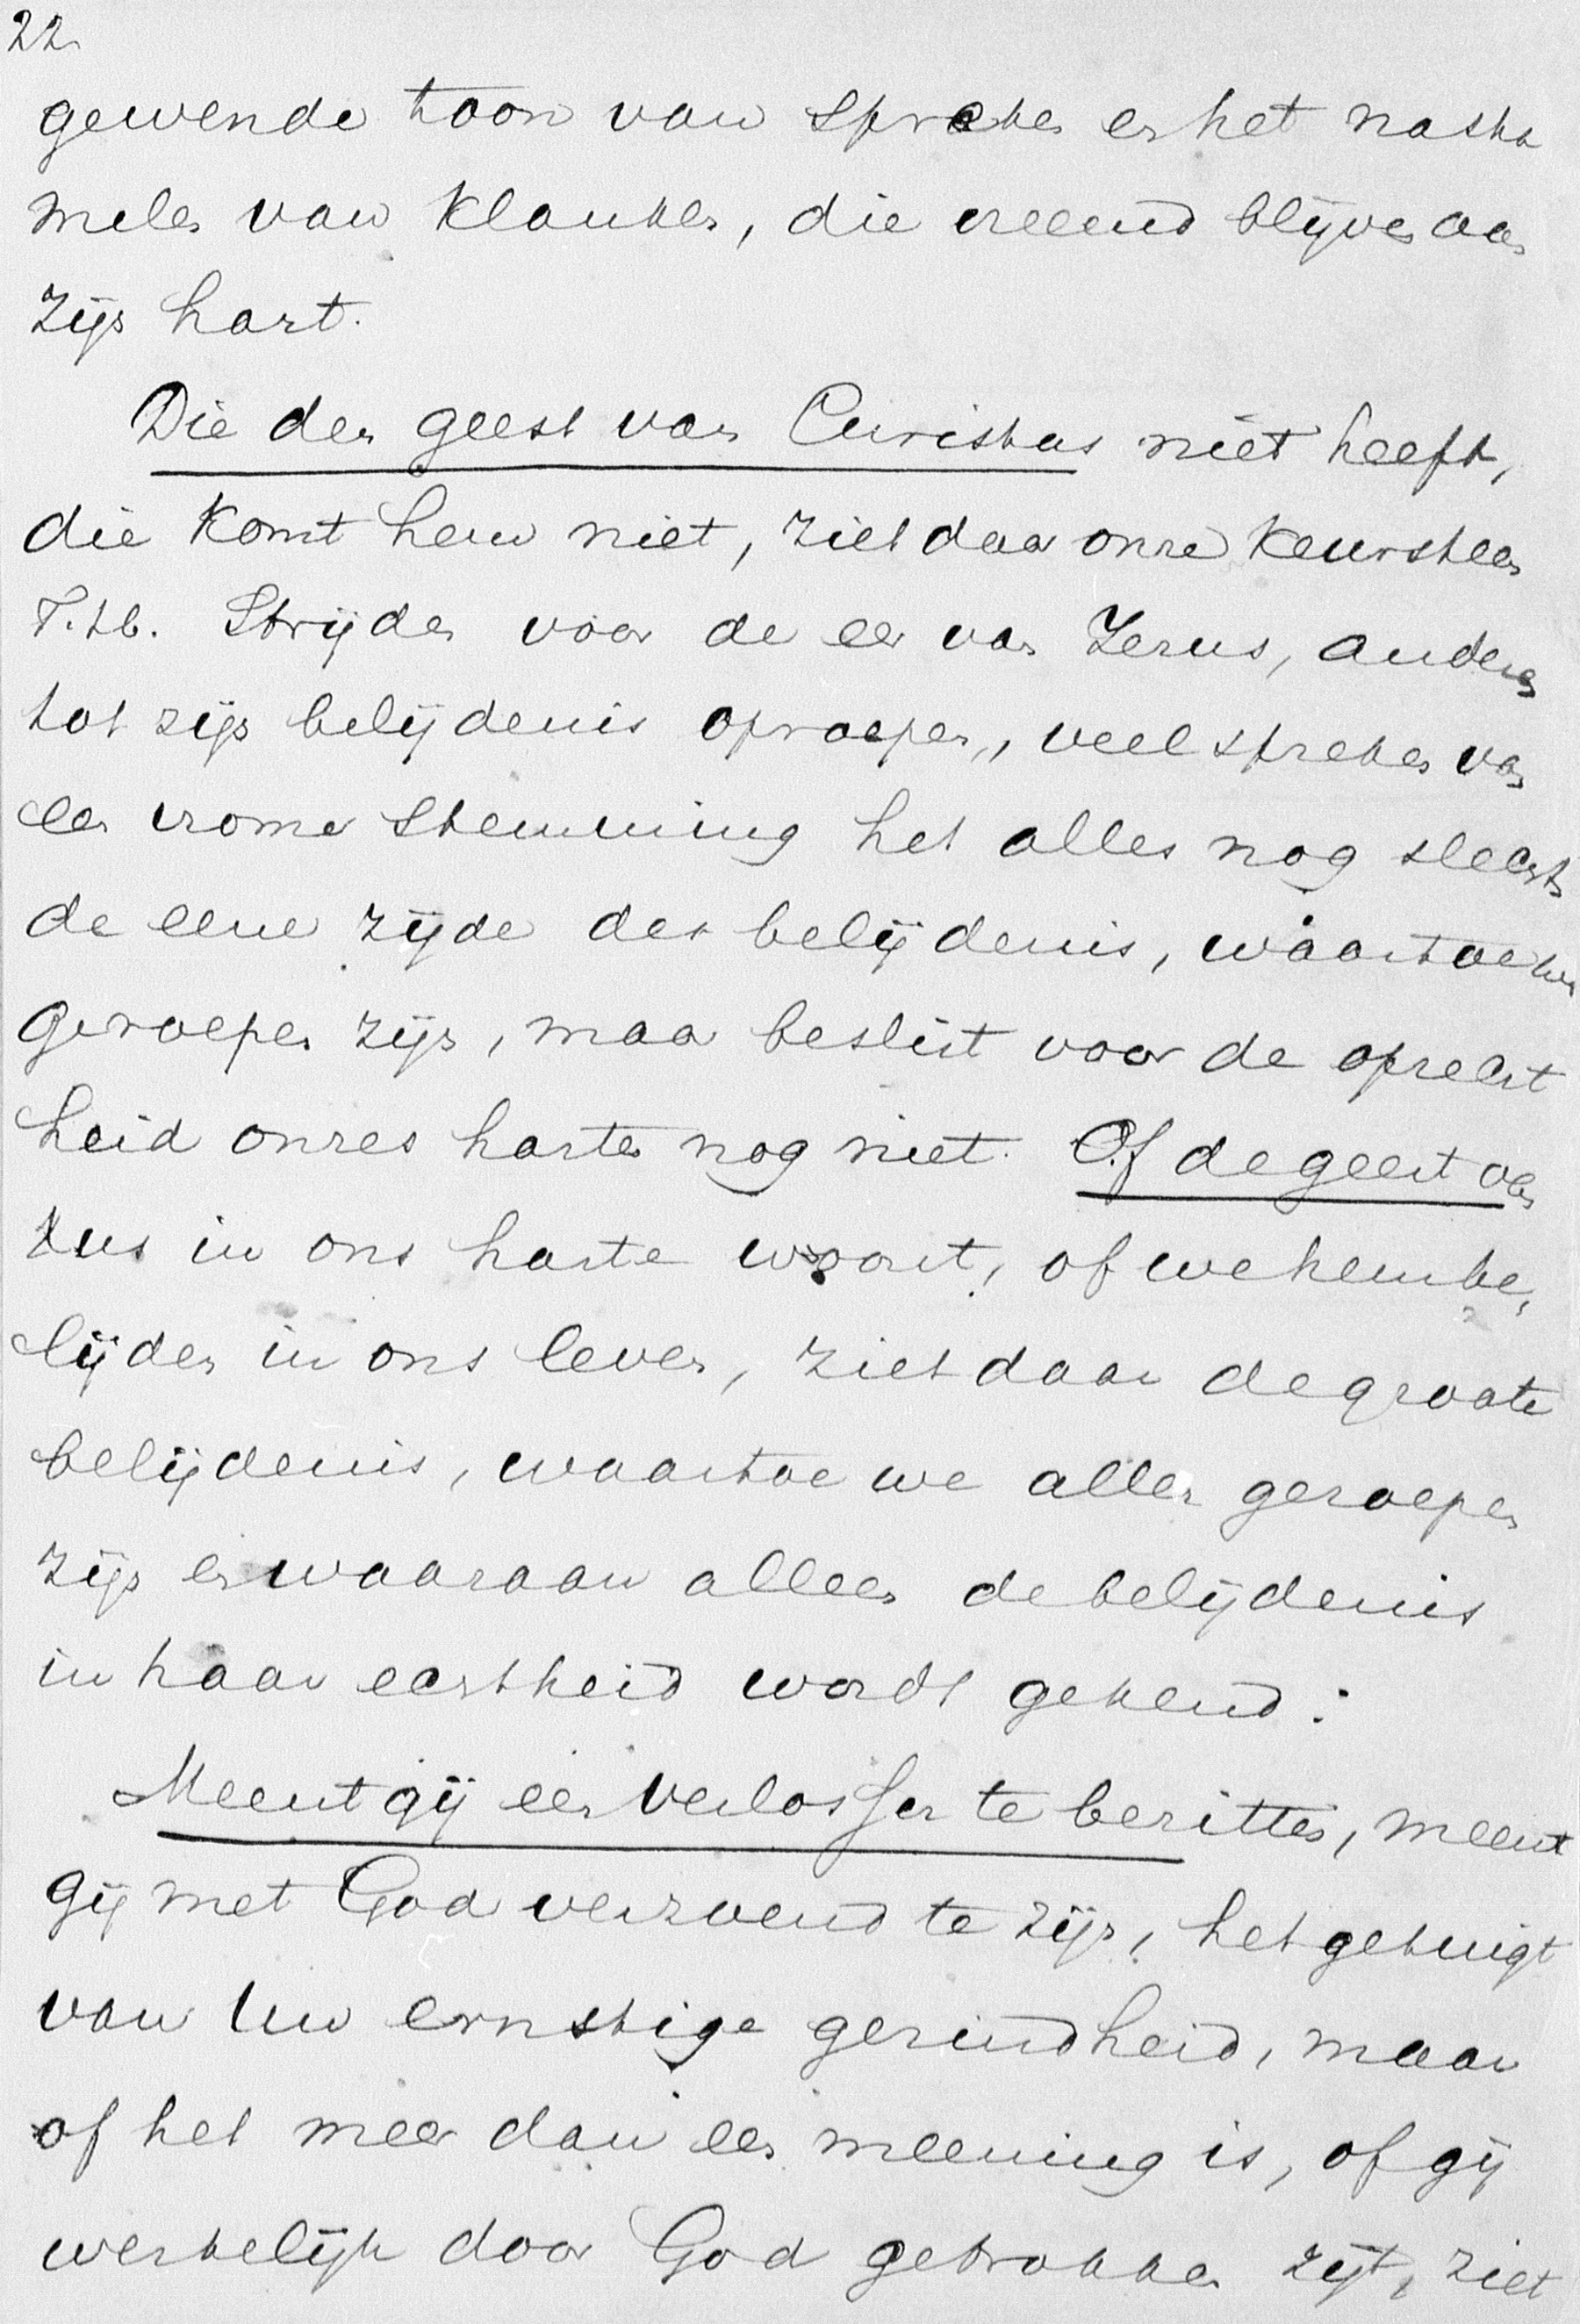 22.
gewende toon van spreken en het nasta
melen van klanken, die vreemd blijven aan
zijn hart.
Die den geest van Christus niet heeft,
die komt hem niet, ziet daar onze keursteen
T. H. Strijden voor de eer van Jezus, anderen
tot zijn belijdenis oproepen, veel spreken van
een vrome stemming het alles nog slechts
de eene zijde der belijdenis, waartoe we
geroepen zijn, maar beslist voor de oprecht
heid onzes harten nog niet. Of de geest van
Jezus in ons harte woont, of we hem be,
lijden in ons leven, ziet daar de groote
belijdenis, waartoe we allen geroepen
zijn en waaraan alleen de belijdenis
in haar echtheid wordt gekend:
Meent gij een verlosser te bezitten, meent
gij met God verzoend te zijn, het getuigt
van Uw ernstige gezindheid, maar
of het meer dan een meening is, of gij
werkelijk door God getrokken zijt, ziet